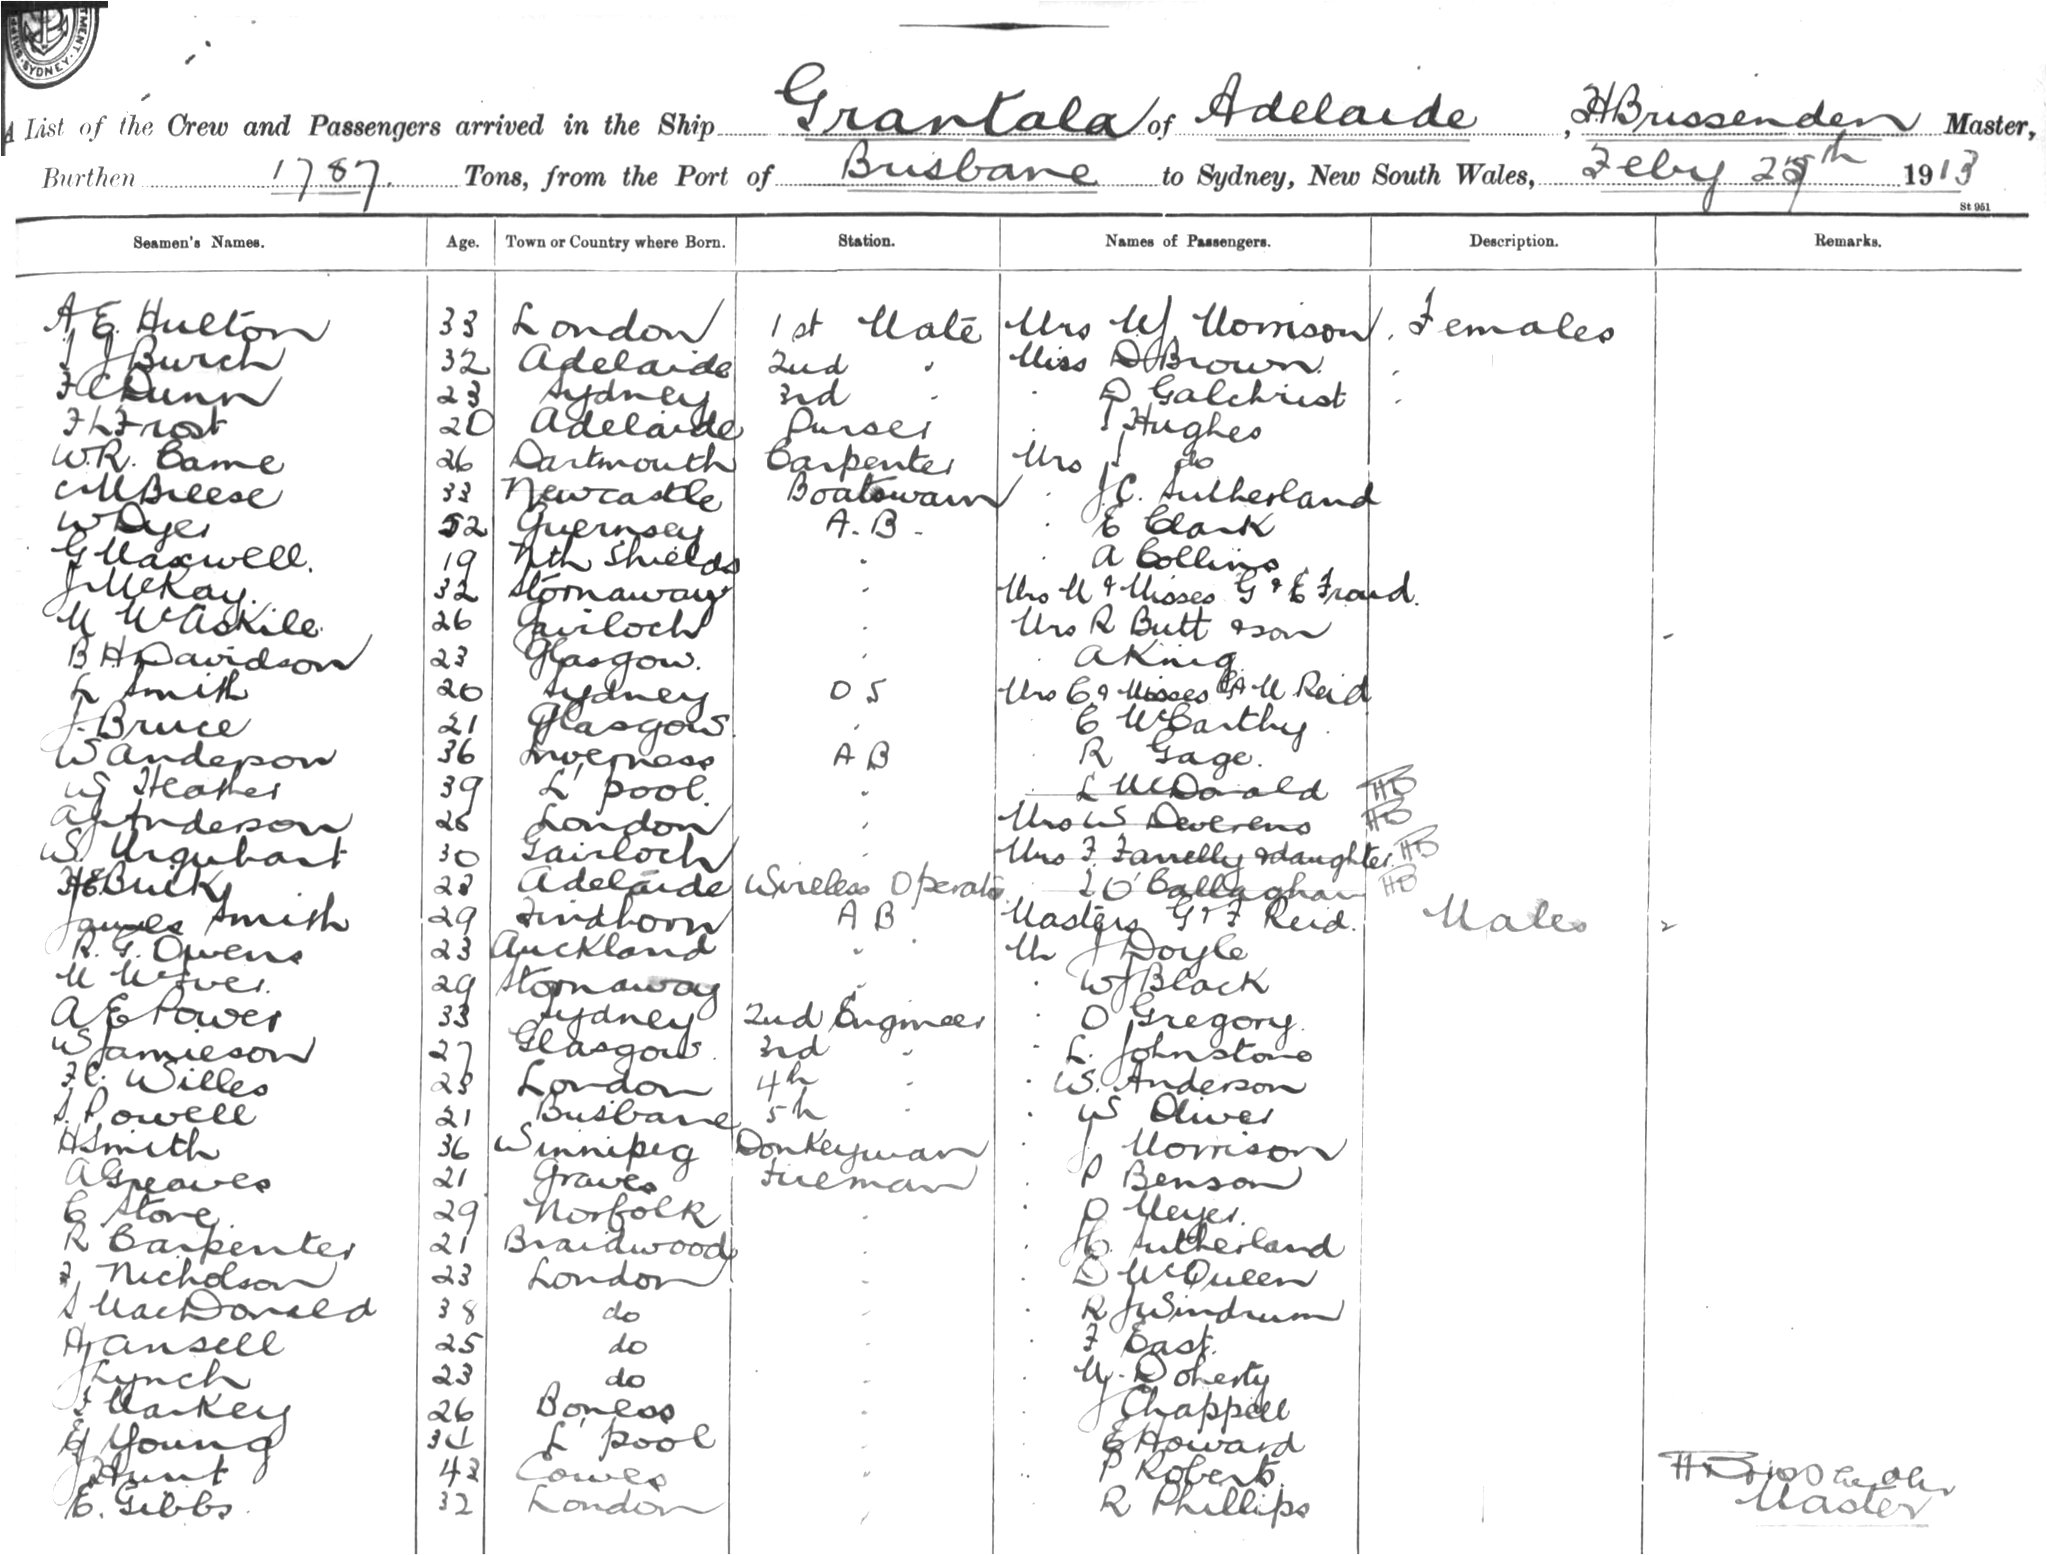 SYDNEY
A List of the Crew and Passengers arrived in the Ship Grantala of Adelaide, H Brissenden Master,
Burthen 1787. Tons, from the Port of Brisbane to Sydney, New South Wales, Feby th 1913
St 951
Seamen's Names. Age. Town or Country where Born. Station. Names of Passengers. Description. Remarks.
A. E. Hulton 33 London 1st Mate Mrs W Morrison Females
J Burch 32 Adelaide 2nd " Miss D Brown
F C Dunn 23 Sydney 3rd " " D Galchrist
F L Frost 20 Adelaide Purser " Hughes
W.R. Came 26 Dartmouth Carpenter Mrs do
C M Breese 33 Newcastle Boatswain " J C. Sutherland
W Dyer 52 Guernsey A.B. " E Clark
G Maxwell. 19 Nth Shields " " A Collins
J McKay. 32 Stornaway " Mrs M & Misses G & E Fraud.
M McAskile 26 Gairloch " Mrs R Butt & son
B H Davidson 23 Glasgow. " " A King
L Smith 20 Sydney O S Mrs C & Misses M Reid
J. Bruce 21 Glasgow " " C McCarthy
W Anderson 36 Inverness A B " R Gage.
W Heather 39 L'pool. " L McDonald HB
A J Anderson London " Mrs W Deverens HB
W. Urquhart 30 Gairloch " Mrs F. Farrelly & daughter. HB
H E Buik 23 Adelaide Wireless Operator " O'Callaghan HB
James Smith 29 Findhorn A B Masters G & F Reid. Males
R. G. Owens 23 Auckland " " Mr J Doyle
M McIver. 29 Stornaway " " W J Black
A E Power 33 Sydney 2nd Engineer " O Gregory.
W Jamieson 27 Glasgow 3rd " " L. Johnstone
F C. Willes London 4th " " W. Anderson
S. Powell 21 Brisbane 5th " " W Oliver
H Smith 36 Winnipeg Donkeyman " J Morrison
A Greaves 21 Graves Fireman " P Benson
C Stone. 29 Norfolk " " D Meyer.
R Carpenter 21 Braidwood " " Sutherland
F Nicholson 23 London " " D McQueen
S MacDonald 38 do " " R J Windrum
A Jansell 25 do " " F East.
J Lynch 23 do " " Doherty
F Markey 26 Boness " " J Chappell
E J Young L'pool " " E Howard
J Hunt 42 Cowes " " P Roberts.
E. Gibbs. 32 London " " R Phillips
H Brissenden
Master